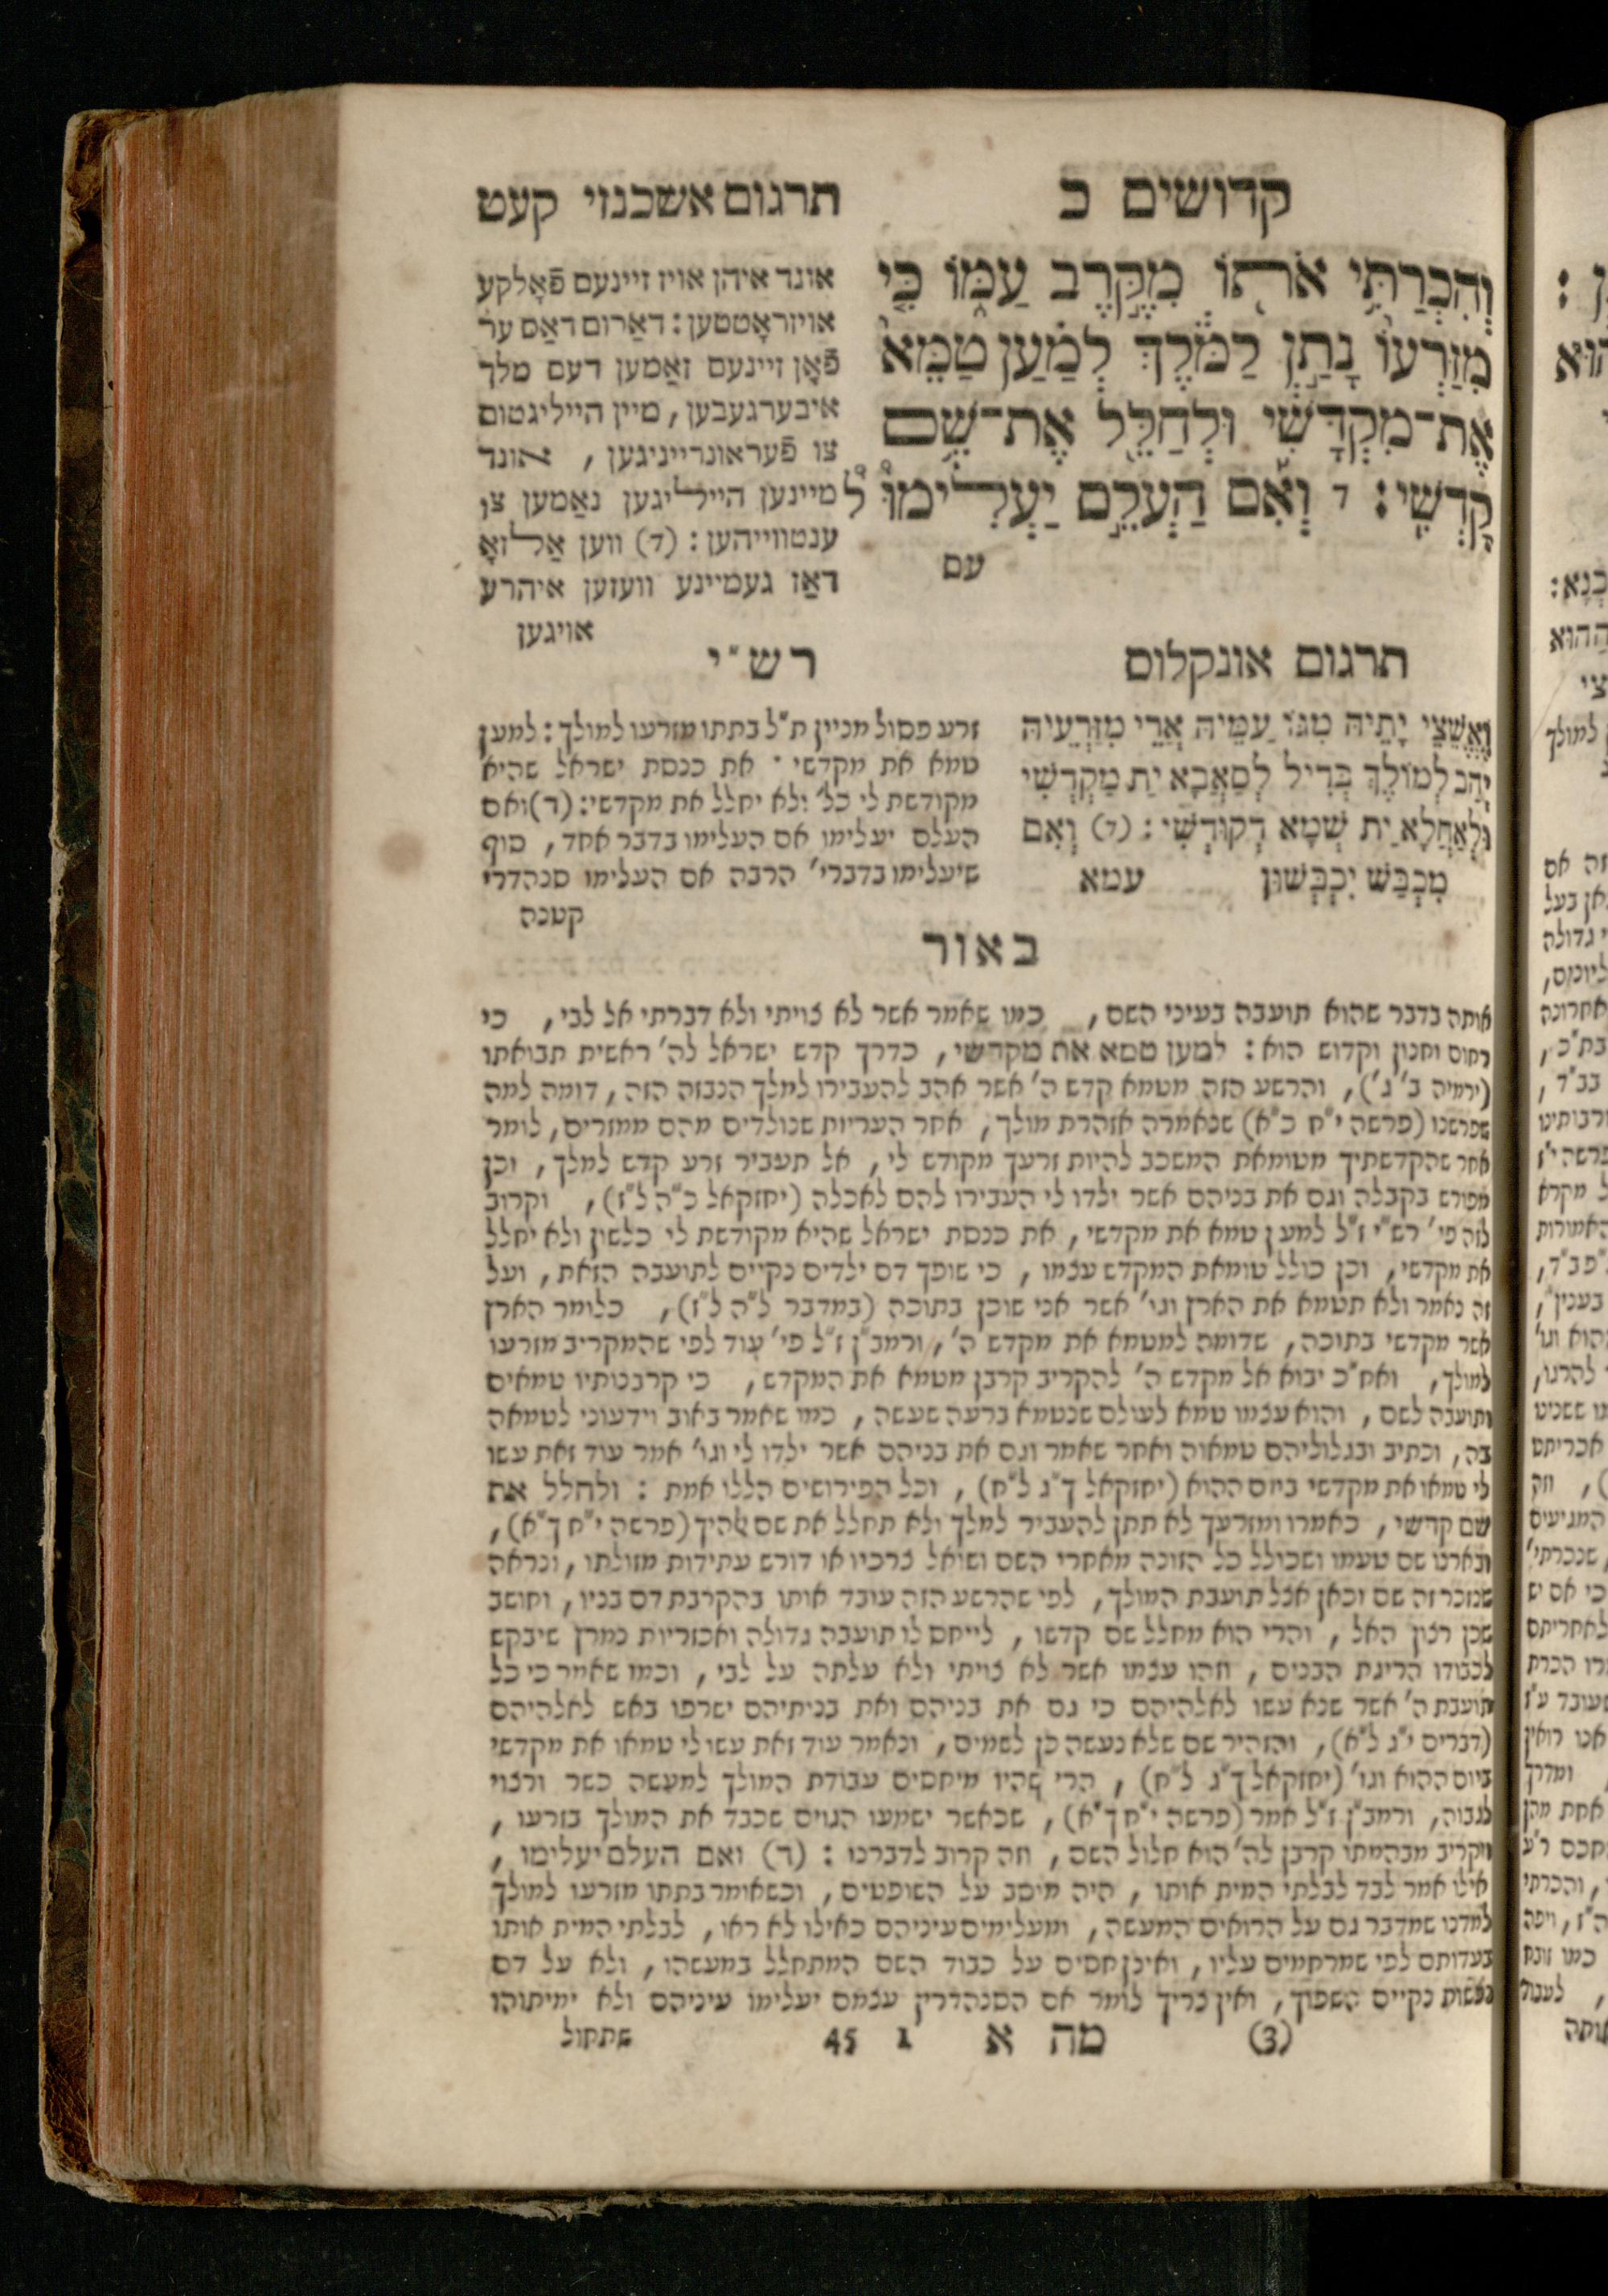 קדושים כ
תרגום אשכנזי קעט
וְהִכְרַתִּ֥י אֹת֖וֹ מִקֶּ֣רֶב עַמּ֑וֹ כִּ֤י
מִזַּרְעוֹ֙ נָתַ֣ן לַמֹּ֔לֶךְ לְמַ֗עַן טַמֵּא֙
אֶת־מִקְדָּשִׁ֔י וּלְחַלֵּ֖ל אֶת־שֵׁ֥ם
קָדְשִֽׁי: ד וְאִ֡ם הַעְלֵ֣ם יַעְלִימוּ֩ ל
עם
אונד איהן אויז זיינעם פֿאָלקע
אויזראָטטען: דאַרום דאַס ער
פֿאָן זיינעם זאַמען דעם מלך
איבערגעבען, מיין הייליגטום
צו פֿעראונרייניגען, אונד
מיינען הייליגען נאַמען צו
ענטווייהען: (ד) ווען אַלזאָ
דאַז געמיינע וועזען איהרע
אויגען
תרגום אונקלוס
וֶאֱשֵׁצֵי יָתֵיהּ מִגּוֹ עַמֵּיהּ אֲרֵי מִזַּרְעֵיהּ
יְהַב לְמוֹלֶךְ בְּדִיל לְסַאֲבָא יַת מַקְדְּשִׁי
וּלְאַחֲלָא יַת שְׁמָא דְקוּדְשִׁי: (ד) וְאִם
מִכְבַּשׁ יִכְבְּשׁוּן עמא
רש"י
זרע פסול מניין ת"ל בתתו מזרעו למולך: למען
טמא את מקדשי · את כנסת ישראל שהיא
מקודשת לי כל' ולא יחלל את מקדשי: (ד) ואם
העלם יעלימו אם העלימו בדבר אחד, סוף
שיעלימו בדברי' הרבה אם העלימו סנהדרי
קטנה
באור
אותה בדבר שהוא תועבה בעיני השם, כמו שאמר אשר לא צויתי ולא דברתי אל לבי, כי
רחום וחנון וקדוש הוא: למען טמא את מקדשי, כדרך קדש ישראל לה' ראשית תבואתו
(ירמיה ב' ג'), והרשע הזה מטמא קדש ה' אשר אהב להעבירו למלך הנבזה הזה, דומה למה
שפרשנו (פרשה י"ח כ"א) שנאמרה אזהרת מולך, אחר העריות שנולדים מהם ממזרים, לומר
אחר שהקדשתיך מטומאת המשכב להיות זרעך מקודש לי, אל תעביר זרע קדש למלך, וכן
מפורש בקבלה וגם את בניהם אשר ילדו לי העבירו להם לאכלה (יחזקאל כ"ה ל"ז), וקרוב
לזה פי' רש"י ז"ל למען טמא את מקדשי, את כנסת ישראל שהיא מקודשת לי כלשון ולא יחלל
את מקדשי, וכן כולל טומאת המקדש עצמו, כי שופך דם ילדים נקיים לתועבה הזאת, ועל
זה נאמר ולא תטמא את הארץ וגו' אשר אני שוכן בתוכה (במדבר ל"ה ל"ז), כלומר הארץ
אשר מקדשי בתוכה, שדומה למטמא את מקדש ה', ורמב"ן ז"ל פי' עוד לפי שהמקריב מזרעו
למולך, ואח"כ יבוא אל מקדש ה' להקריב קרבן מטמא את המקדש, כי קרבנותיו טמאים
ותועבה לשם, והוא עצמו טמא לעולם שנטמא ברעה שעשה, כמו שאמר באוב וידעוני לטמאה
בה, וכתיב ובגלוליהם טמאוה ואחר שאמר וגם את בניהם אשר ילדו לי וגו' אמר עוד זאת עשו
לי טמאו את מקדשי ביום ההוא (יחזקאל ך"ג ל"ח), וכל הפירושים הללו אמת: ולחלל את
שם קדשי, כאמרו ומזרעך לא תתן להעביר למלך ולא תחלל את שם אלהיך (פרשה י"ח ך"א),
ובארנו שם טעמו ושכולל כל הזונה מאחרי השם ושואל צרכיו או דורש עתידות מזולתו, ונראה
שנזכר זה שם וכאן אצל תועבת המולך, לפי שהרשע הזה עובד אותו בהקרבת דם בניו, וחושב
שכן רצון האל, והרי הוא מחלל שם קדשו, לייחס לו תועבה גדולה ואכזריות נמרץ שיבקש
לכבודו הריגת הבנים, וזהו עצמו אשר לא צויתי ולא עלתה על לבי, וכמו שאמר כי כל
תועבת ה' אשר שנא עשו לאלהיהם כי גם את בניהם ואת בנותיהם ישרפו באש לאלהיהם
(דברים י"ג ל"א), והזהיר שם שלא נעשה כן לשמים, ונאמר עוד זאת עשו לי טמאו את מקדשי
ביום ההוא וגו' (יחזקאל ך"ג ל"ח), הרי שהיו מיחסים עבודת המולך למעשה כשר ורצוי
לגבוה, ורמב"ן ז"ל אמר (פרשה י"ח ך"א), שכאשר ישמעו הגוים שכבד את המולך בזרעו,
ויקריב מבהמתו קרבן לה' הוא חלול השם, וזה קרוב לדברנו: (ד) ואם העלם יעלימו,
אילו אמר לבד לבלתי המית אותו, היה מוסב על השופטים, וכשאומר בתתו מזרעו למולך
למדנו שמדבר גם על הרואים המעשה, ומעלימים עיניהם כאילו לא ראו, לבלתי המית אותו
בעדותם לפי שמרחמים עליו, ואינן חסים על כבוד השם המתחלל במעשהו, ולא על דם
נפשות נקיים השפוך, ואין צריך לומר אם הסנהדרין עצמם יעלימו עיניהם ולא ימיתוהו
(3) מה א 1 45 שתחול